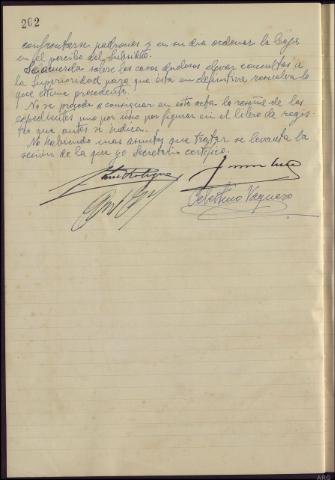 202
confrontarse padrones y en su dia ordenar la baja
en el percibo del Subsidio.
Se acuerda sobre los casos dudosos elevar consultas a
la Superioridad para que esta en definitiva resuelva lo
que estime procedente.
No se procede a consignar en esta acta la reseña de los
expedientes uno por uno por figurar en el libro de regis-
tro que antes se indica.
No habiendo mas asuntos que tratar se levanta la
sesion de la que yo Secretario certifico.
Celestino Vazquez
ARG